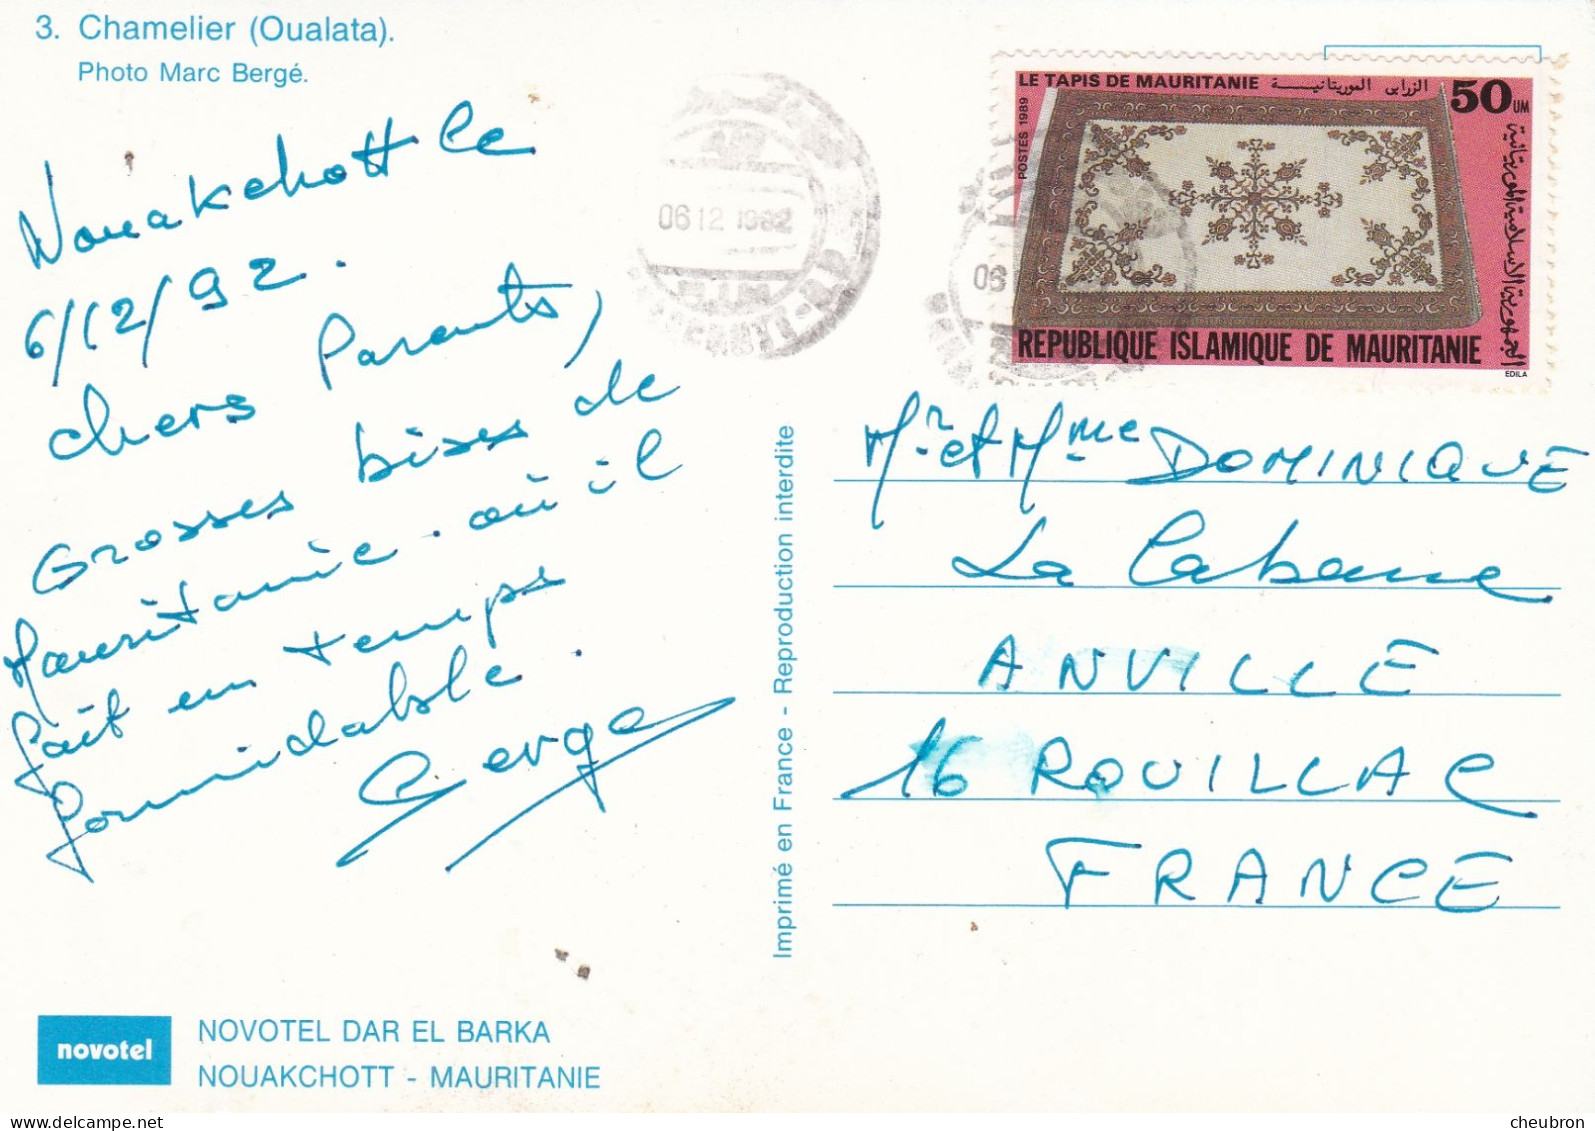 3. Chamelier (Oualata).
Photo Marc Bergé.
Nouakchott le
6/12/92.
chers Parents,
Grosses bises de
Mauritanie. où il
fait un temps
formidable.
Serge
novotel
NOVOTEL DAR EL BARKA
NOUAKCHOTT - MAURITANIE
Imprimé en France - Reproduction interdite
06 12 1992
06
LE TAPIS DE MAURITANIE الزرابي الموريتانيـــة
50 UM
POSTES 1989
الجمهورية الإسلامية الموريتانية
REPUBLIQUE ISLAMIQUE DE MAURITANIE
EDILA
Mr et Mme DOMINIQUE
La Cabane
ANVILLE
16 ROUILLAC
FRANCE
cheubron